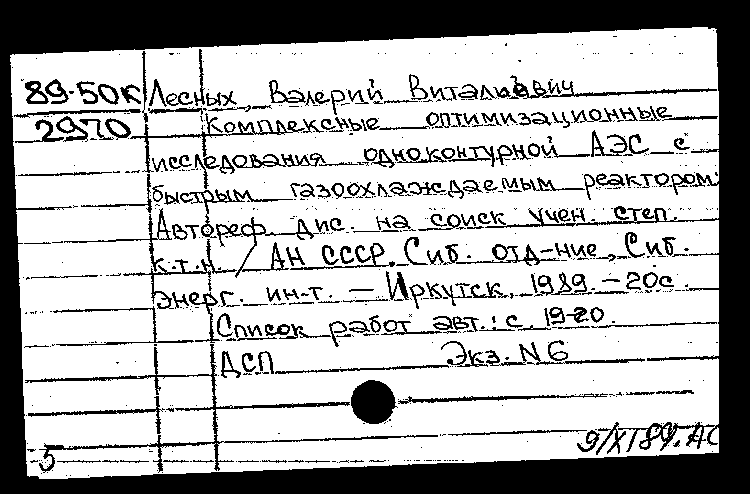 89-50к Лесных, Валерий Витальевич
2970 Комплексные оптимизационные
исследования одноконтурной АЭС с
быстрым газоохлаждаемым реактором:
Автореф. дис. на соиск учен. степ.
к.т.н. / АН СССР. Сиб. отд-ние, Сиб.
энерг. ин-т. — Иркутск, 1989. — 20с.
Список работ авт.: с. 19-20.
ДСП Экз. N 6
9/XI 89. АС
5